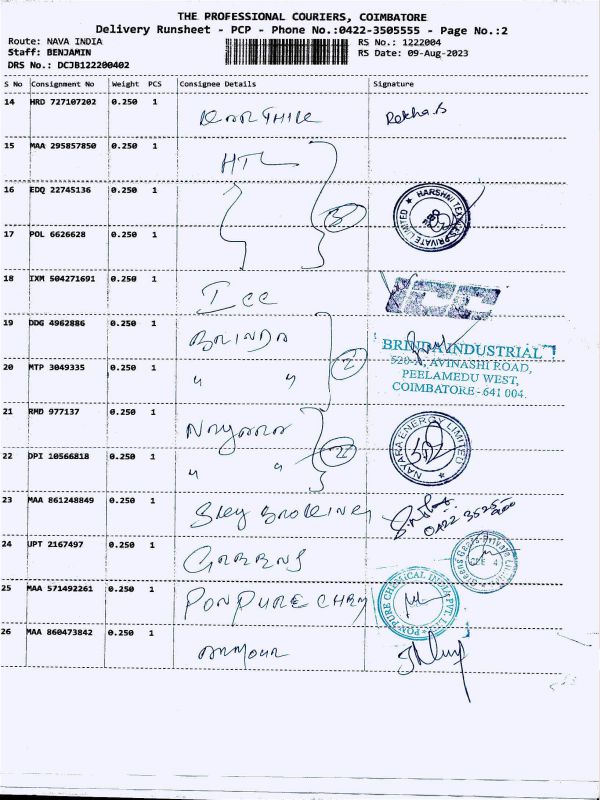 THE PROFESSIONAL COURIERS, COIMBATORE
Delivery Runsheet - PCP - Phone No.:0422-3505555 - Page No.:2
Route: NAVA INDIA RS No.: 1222004
Staff: BENJAMIN RS Date: 09-Aug-2023
DRS No.: DCJB122200402
S No Consignment No Weight PCS Consignee Details Signature
14 HRD 727107202 0.250 1 Rekha.S
15 MAA 295857850 0.250 1 HTL
16 EDQ 22745136 0.250 1 HARSHNI TEX PRIVATE LIMITED
17 POL 6626628 0.250 1
18 IXM 504271691 0.250 1 ICC ICC
19 DDG 4962886 0.250 1 BRINDA BRINDA INDUSTRIAL
20 MTP 3049335 0.250 1 " " 2 AVINASHI ROAD,
PEELAMEDU WEST,
COIMBATORE - 641 004.
21 RMD 977137 0.250 1 Nayara NAYARA ENERGY LIMITED
22 DPI 10566818 0.250 1 " "
23 MAA 861248849 0.250 1 0422
24 UPT 2167497 0.250 1
25 MAA 571492261 0.250 1 PONPURE CHEM PON PURE CHEMICAL INDIA PVT. LTD
26 MAA 860473842 0.250 1 ARMOUR